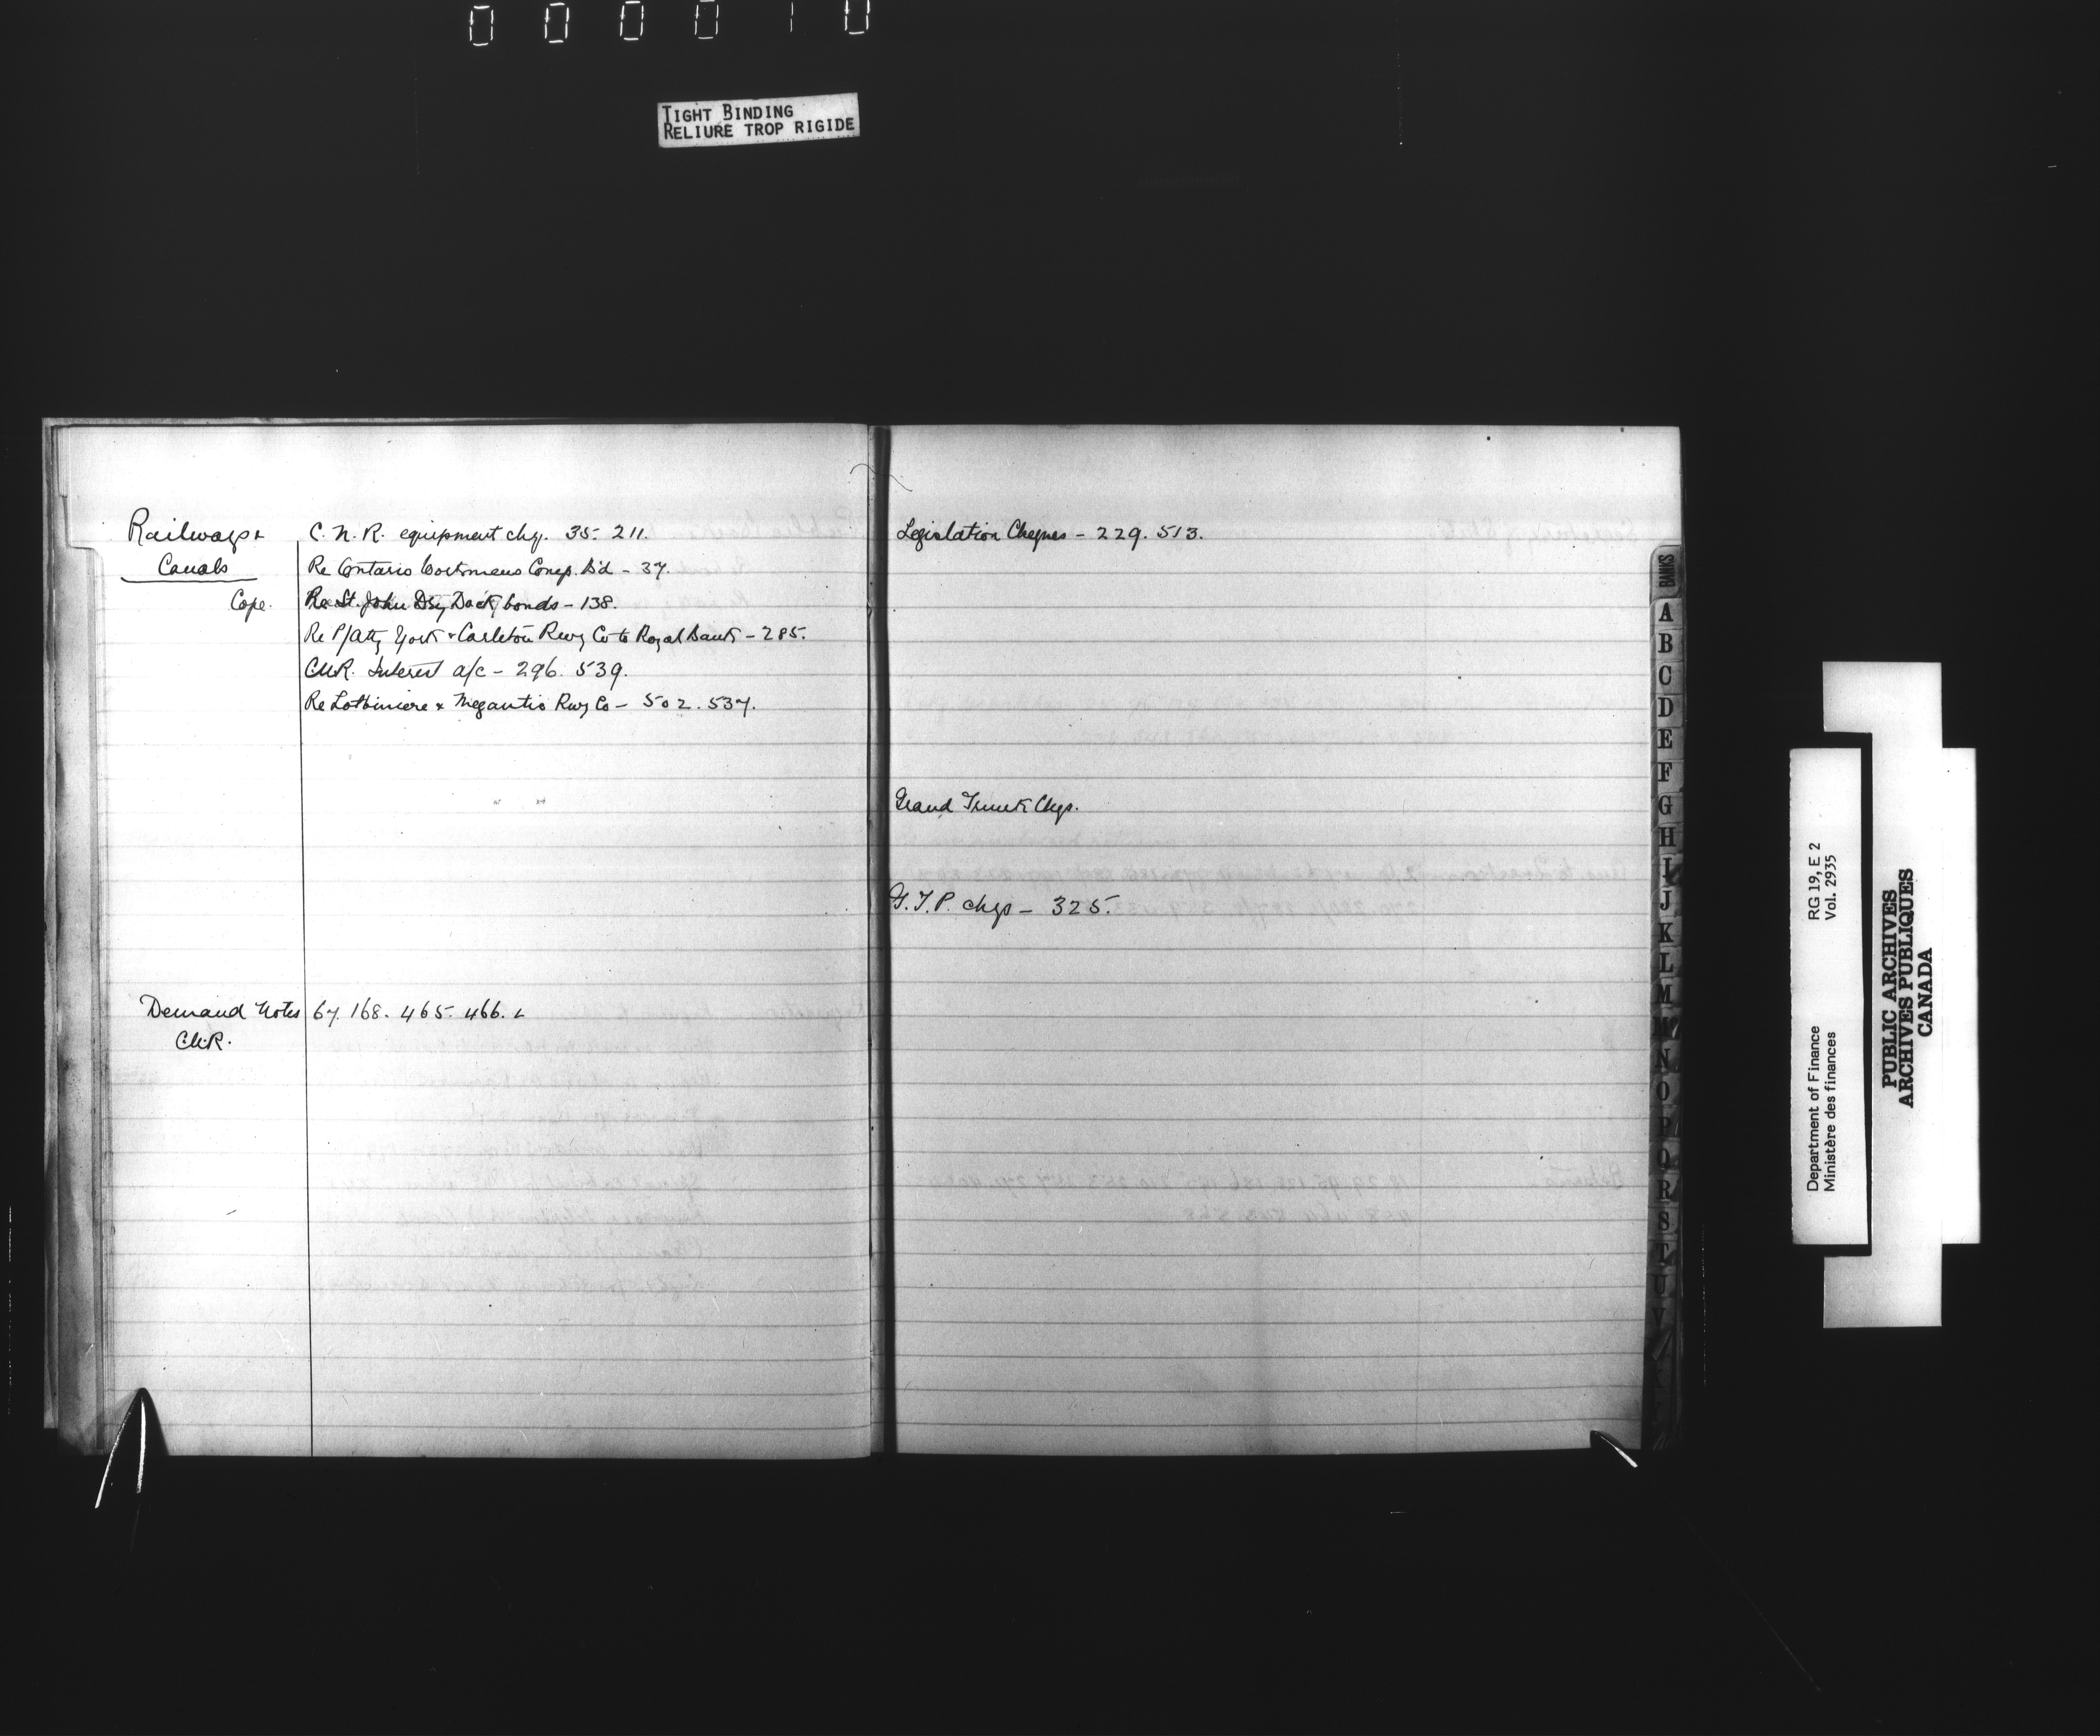 000010
TIGHT BINDING
RELIURE TROP RIGIDE
Railways &
Canals
Cope.
C. N. R. equipment chq. 35. 211.
Re Ontario Workmens Comp. B'd - 37.
Re St. John Dry Dock bonds - 138.
Re P/atty York & Carleton Rwy Co to Royal Bank - 285.
CNR. Interest a/c - 296. 539.
Re Lotbiniere & Megantic Rwy Co - 502. 537.
Demand Notes 67. 168. 465. 466.
CNR.
Legislation Cheques - 229. 513.
Grand Trunk Chqs.
G.T.P. chqs - 325.
BANKS
A
B
C
D
E
F
G
H
I
J
K
L
M
Mc
N
O
P
Q
R
S
T
U
V
Department of Finance RG 19, E 2
Ministère des finances Vol. 2935
PUBLIC ARCHIVES
ARCHIVES PUBLIQUES
CANADA